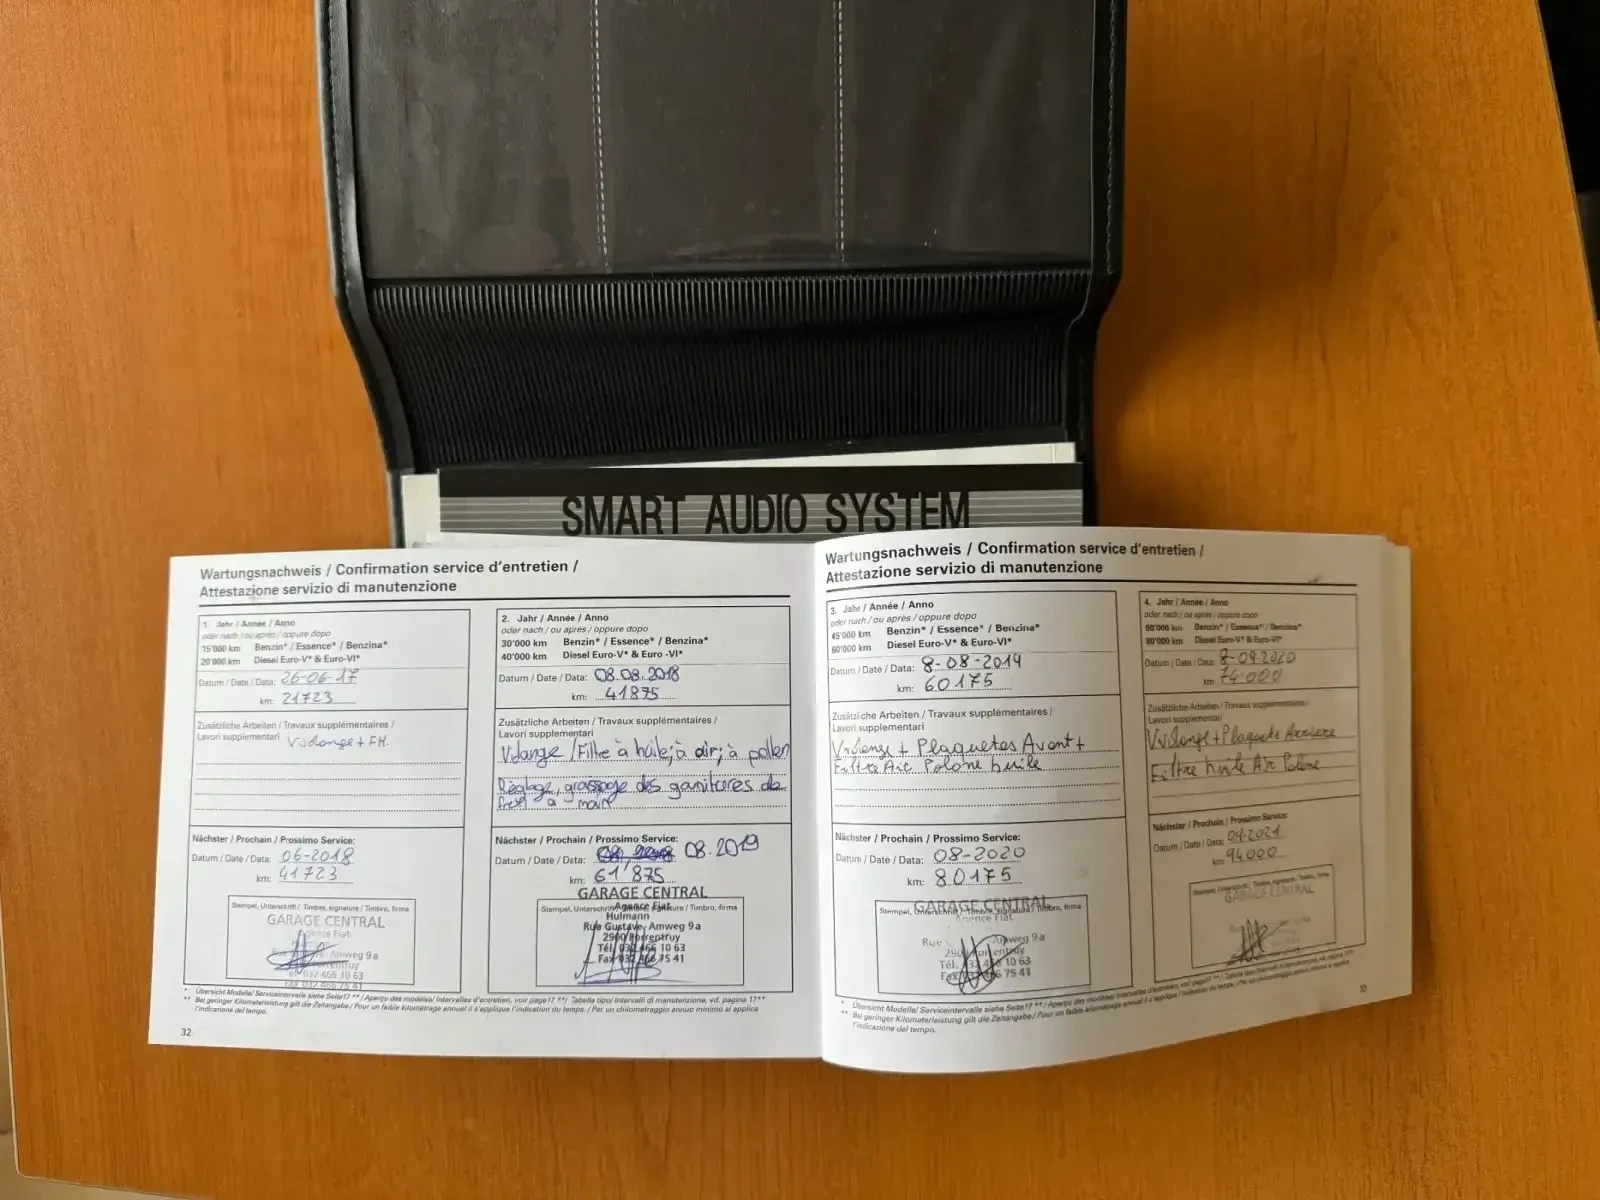 SMART AUDIO SYSTEM
Wartungsnachweis / Confirmation service d'entretien /
Attestazione servizio di manutenzione
1. Jahr / Année / Anno
oder nach / ou après / oppure dopo
15'000 km Benzin* / Essence* / Benzina*
20'000 km Diesel Euro-V* & Euro-VI*
Datum / Date / Data: 26-06-17
km: 21723
Zusätzliche Arbeiten / Travaux supplémentaires /
Lavori supplementari Vidange + FH.
Nächster / Prochain / Prossimo Service:
Datum / Date / Data: 06-2018
km: 41723
Stempel, Unterschrift / Timbre, signature / Timbro, firma
GARAGE CENTRAL
Agence Fiat
Amweg 9a
Tél. 032 466 10 63
Fax 032 466 75 41
2. Jahr / Année / Anno
oder nach / ou après / oppure dopo
30'000 km Benzin* / Essence* / Benzina*
40'000 km Diesel Euro-V* & Euro-VI*
Datum / Date / Data: 08.08.2018
km: 41875
Zusätzliche Arbeiten / Travaux supplémentaires /
Lavori supplementari
Vidange / Filtre à huile, à air, à pollen
Réglage, graissage des garnitures de
frein à main
Nächster / Prochain / Prossimo Service:
Datum / Date / Data: 08.2019
km: 61'875
GARAGE CENTRAL
Stempel, Unterschrift / Timbre, signature / Timbro, firma
Agence Fiat
Hulmann
Rue Gustave-Amweg 9a
2900 Porrentruy
Tél. 032 466 10 63
Fax 032 466 75 41
* Übersicht Modelle/ Serviceintervalle siehe Seite17 **/ Aperçu des modèles/ Intervalles d'entretien, voir page17 **/ Tabella tipo/ Intervalli di manutenzione, vd. pagina 17**
** Bei geringer Kilometerleistung gilt die Zeitangabe./ Pour un faible kilométrage annuel il s'applique l'indication du temps. / Per un chilometraggio annuo minimo si applica
l'indicazione del tempo.
32
Wartungsnachweis / Confirmation service d'entretien /
Attestazione servizio di manutenzione
3. Jahr / Année / Anno
oder nach / ou après / oppure dopo
45'000 km Benzin* / Essence* / Benzina*
60'000 km Diesel Euro-V* & Euro-VI*
Datum / Date / Data: 8-08-2019
km: 60175
Zusätzliche Arbeiten / Travaux supplémentaires /
Lavori supplementari
Vidange + Plaquetes Avant +
Filtre Air Polene huile
Nächster / Prochain / Prossimo Service:
Datum / Date / Data: 08-2020
km: 80175
GARAGE CENTRAL
Stempel, Unterschrift / Timbre, signature / Timbro, firma
Agence Fiat
Rue Amweg 9a
2900 Porrentruy
Tél. 032 466 10 63
Fax 032 466 75 41
4. Jahr / Année / Anno
oder nach / ou après / oppure dopo
60'000 km Benzin* / Essence* / Benzina*
80'000 km Diesel Euro-V* & Euro-VI*
Datum / Date / Data: 8-09-2020
km: 74000
Zusätzliche Arbeiten / Travaux supplémentaires /
Lavori supplementari
Vidange + Plaquets Arriere
Filtre huile Air Polene
Nächster / Prochain / Prossimo Service:
Datum / Date / Data: 09-2021
km: 94000
Stempel, Unterschrift / Timbre, signature / Timbro, firma
GARAGE CENTRAL
* Übersicht Modelle/ Serviceintervalle siehe Seite17 **/ Aperçu des modèles/ Intervalles d'entretien, voir page17 **/ Tabella tipo/ Intervalli di manutenzione, vd. pagina 17**
** Bei geringer Kilometerleistung gilt die Zeitangabe./ Pour un faible kilométrage annuel il s'applique l'indication du temps. / Per un chilometraggio annuo minimo si applica
l'indicazione del tempo.
33